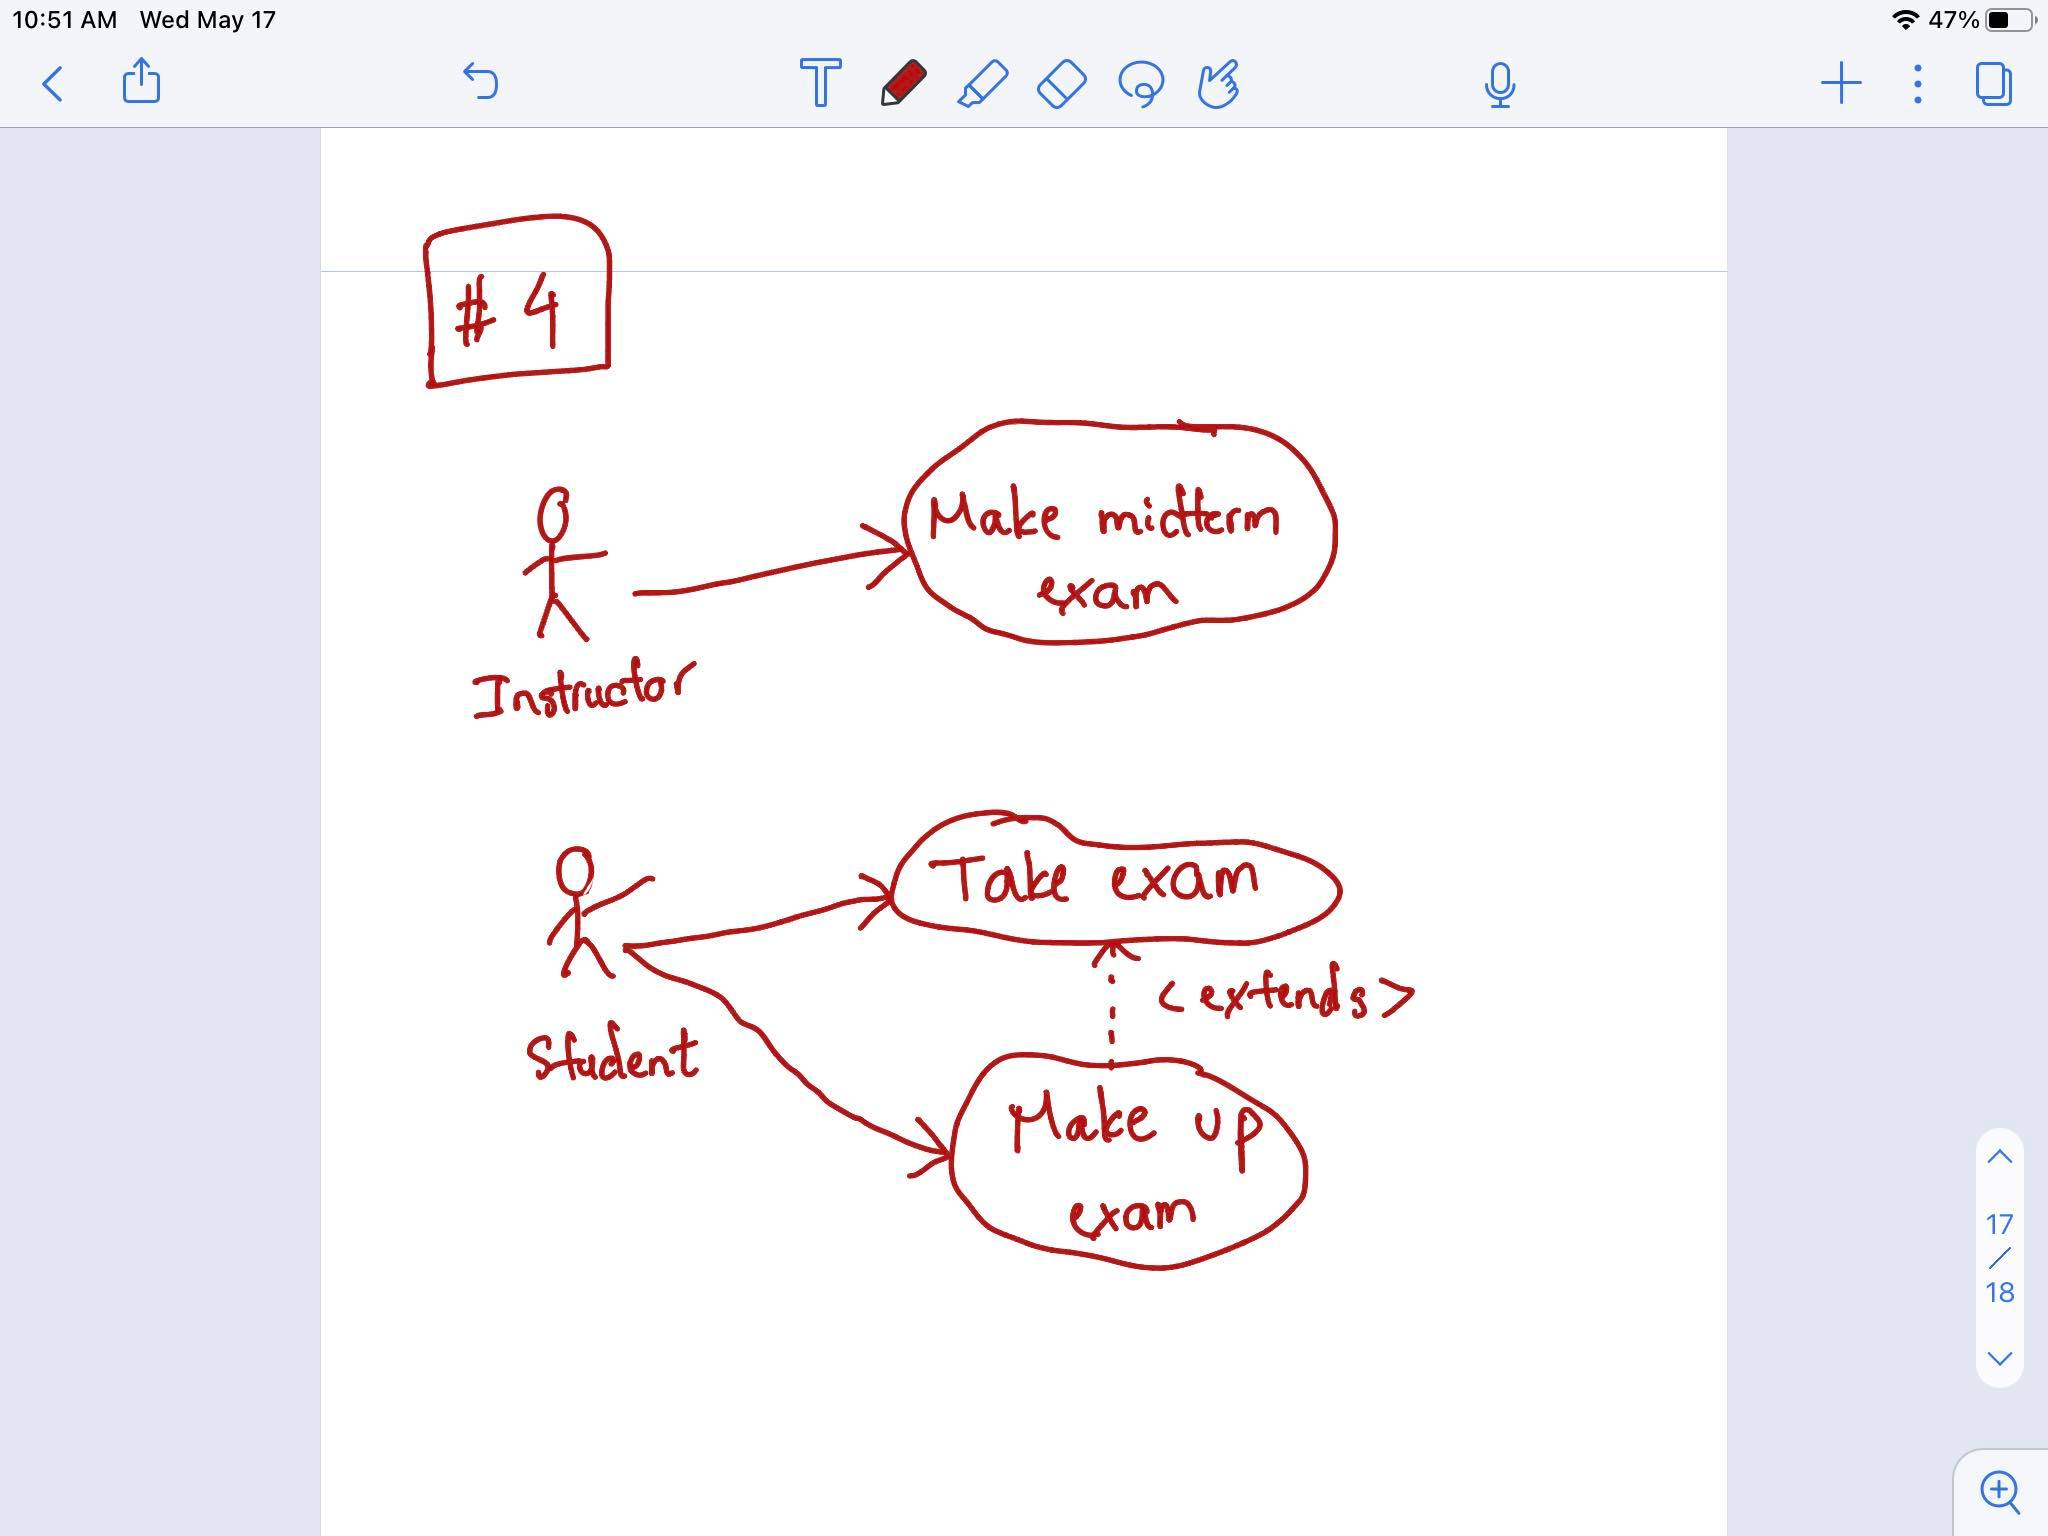 10:51 AM Wed May 17
47%
T
# 4
Make midterm
exam
Instructor
Take exam
<extends>
Student
Make up
exam
17
/
18